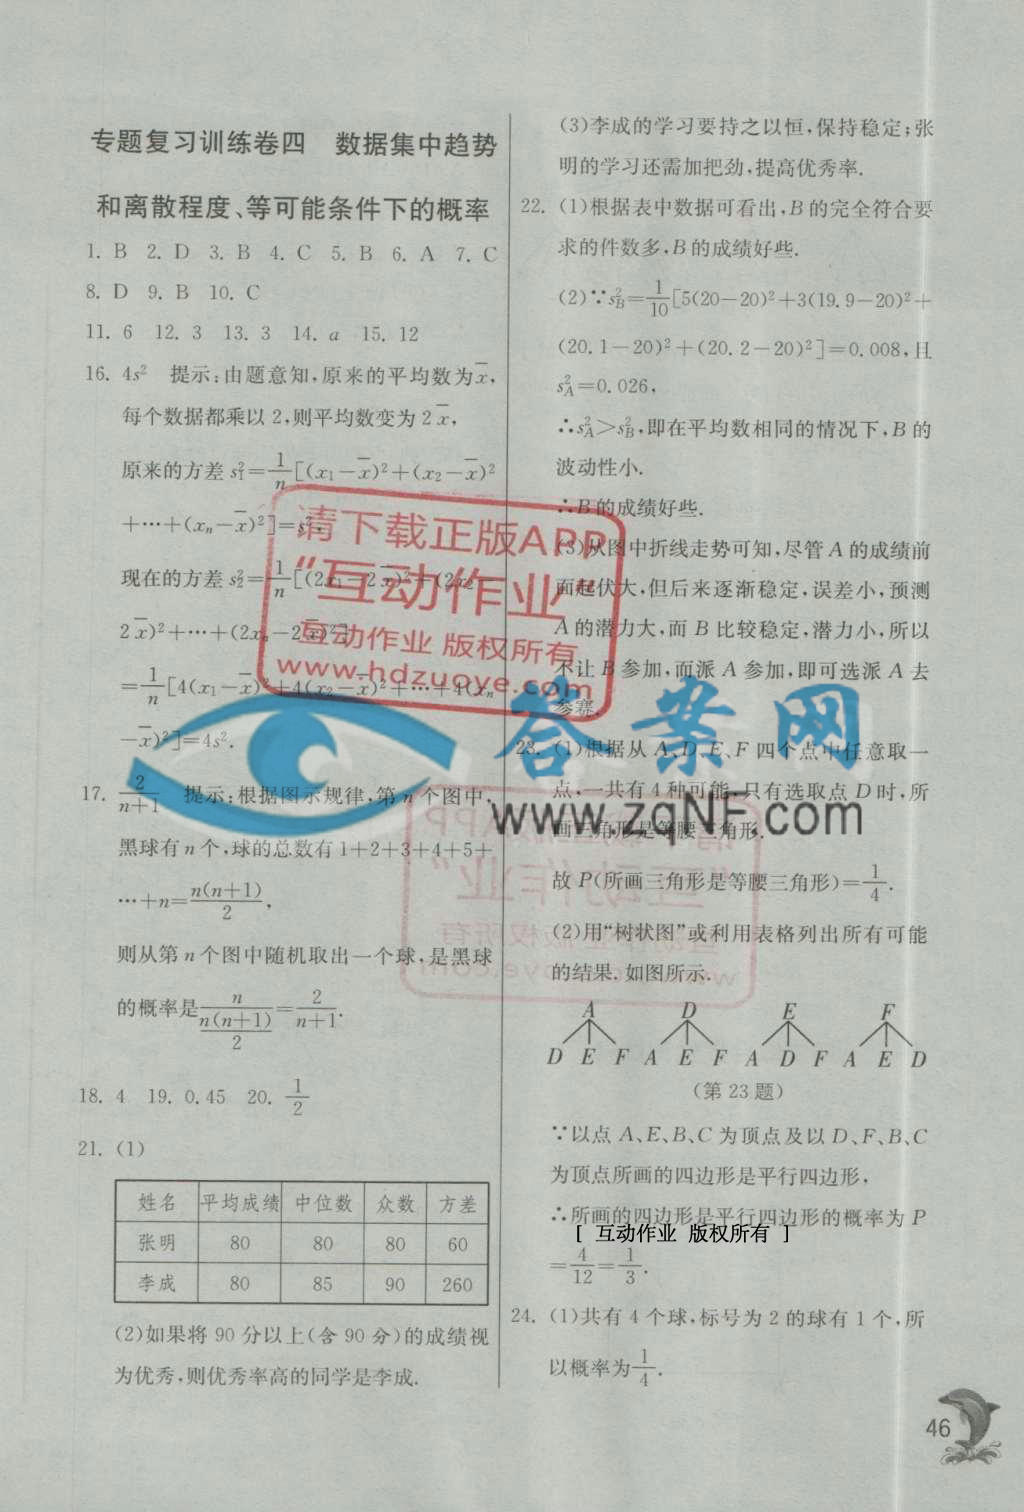 专题复习训练卷四　数据集中趋势
和离散程度、等可能条件下的概率
1. B 2. D 3. B 4. C 5. B 6. A 7. C
8. D 9. B 10. C
11. 6 12. 3 13. 3 14. a 15. 12
16. 4s² 提示:由题意知,原来的平均数为x̄,
每个数据都乘以 2,则平均数变为 2x̄,
原来的方差 s₁²=1/n[(x₁-x̄)²+(x₂-x̄)²
+…+(xₙ-x̄)²]=s²,
现在的方差 s₂²=1/n[(2x₁-2x̄)²+(2x₂-
2x̄)²+…+(2xₙ-2x̄)²]
=1/n[4(x₁-x̄)²+4(x₂-x̄)²+…+4(xₙ
-x̄)²]=4s².
17. 2/(n+1) 提示:根据图示规律,第 n 个图中,
黑球有 n 个,球的总数有 1+2+3+4+5+
…+n=n(n+1)/2,
则从第 n 个图中随机取出一个球,是黑球
的概率是n/(n(n+1)/2)=2/(n+1).
18. 4 19. 0.45 20. 1/2
21. (1)
姓名 平均成绩 中位数 众数 方差
张明 80 80 80 60
李成 80 85 90 260
(2)如果将 90 分以上(含 90 分)的成绩视
为优秀,则优秀率高的同学是李成.
(3)李成的学习要持之以恒,保持稳定;张
明的学习还需加把劲,提高优秀率.
22. (1)根据表中数据可看出,B 的完全符合要
求的件数多,B 的成绩好些.
(2)∵s_B²=1/10[5(20-20)²+3(19.9-20)²+
(20.1-20)²+(20.2-20)²]=0.008,且
s_A²=0.026,
∴s_A²>s_B²,即在平均数相同的情况下,B 的
波动性小.
∴B的成绩好些.
(3)从图中折线走势可知,尽管 A 的成绩前
面起伏大,但后来逐渐稳定,误差小,预测
A 的潜力大,而 B 比较稳定,潜力小,所以
不让 B 参加,而派 A 参加,即可选派 A 去
参赛.
23. (1)根据从 A、D、E、F 四个点中任意取一
点,一共有 4 种可能,只有选取点 D 时,所
画三角形是等腰三角形.
故 P(所画三角形是等腰三角形)=1/4.
(2)用“树状图”或利用表格列出所有可能
的结果. 如图所示.
A D E F
D E F A E F A D F A E D
(第 23 题)
∵以点 A、E、B、C 为顶点及以 D、F、B、C
为顶点所画的四边形是平行四边形,
∴所画的四边形是平行四边形的概率为 P
[ 互动作业 版权所有 ]
=4/12=1/3.
24. (1)共有 4 个球,标号为 2 的球有 1 个,所
以概率为1/4.
46
请下载正版APP
“互动作业”
互动作业 版权所有
www.hdzuoye.com
答案网
www.zqNF.com